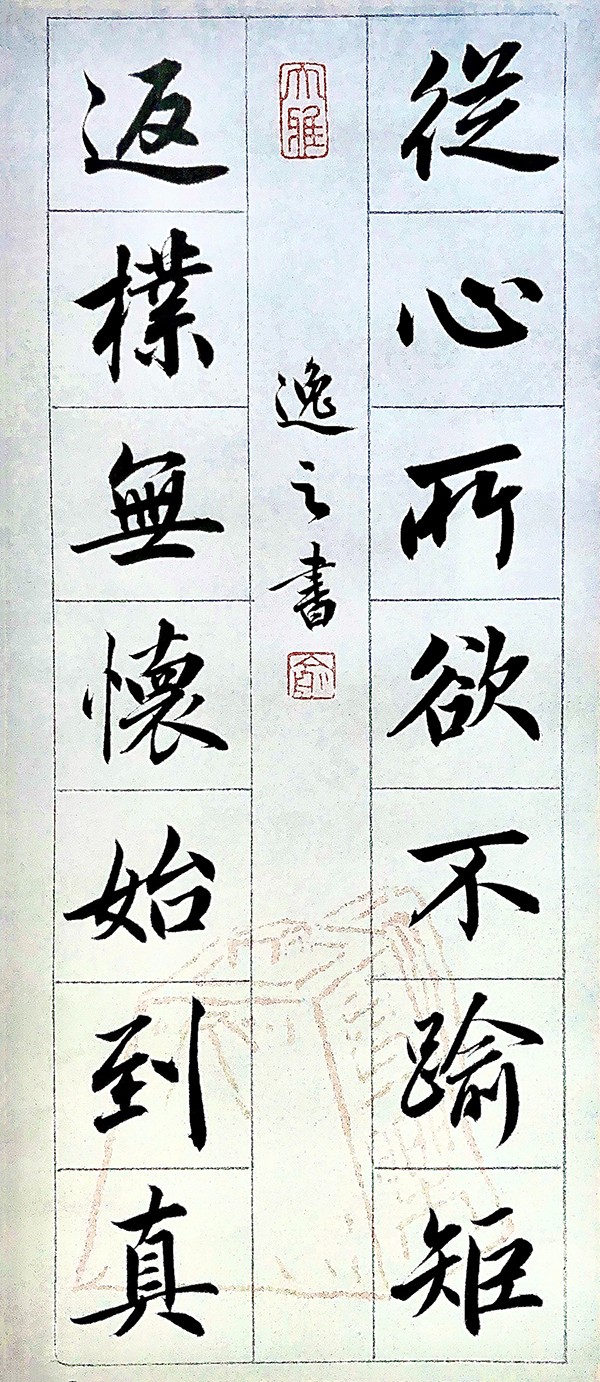 從心所欲不踰矩
大雅
逸之書
俞
返樸無懷始到真